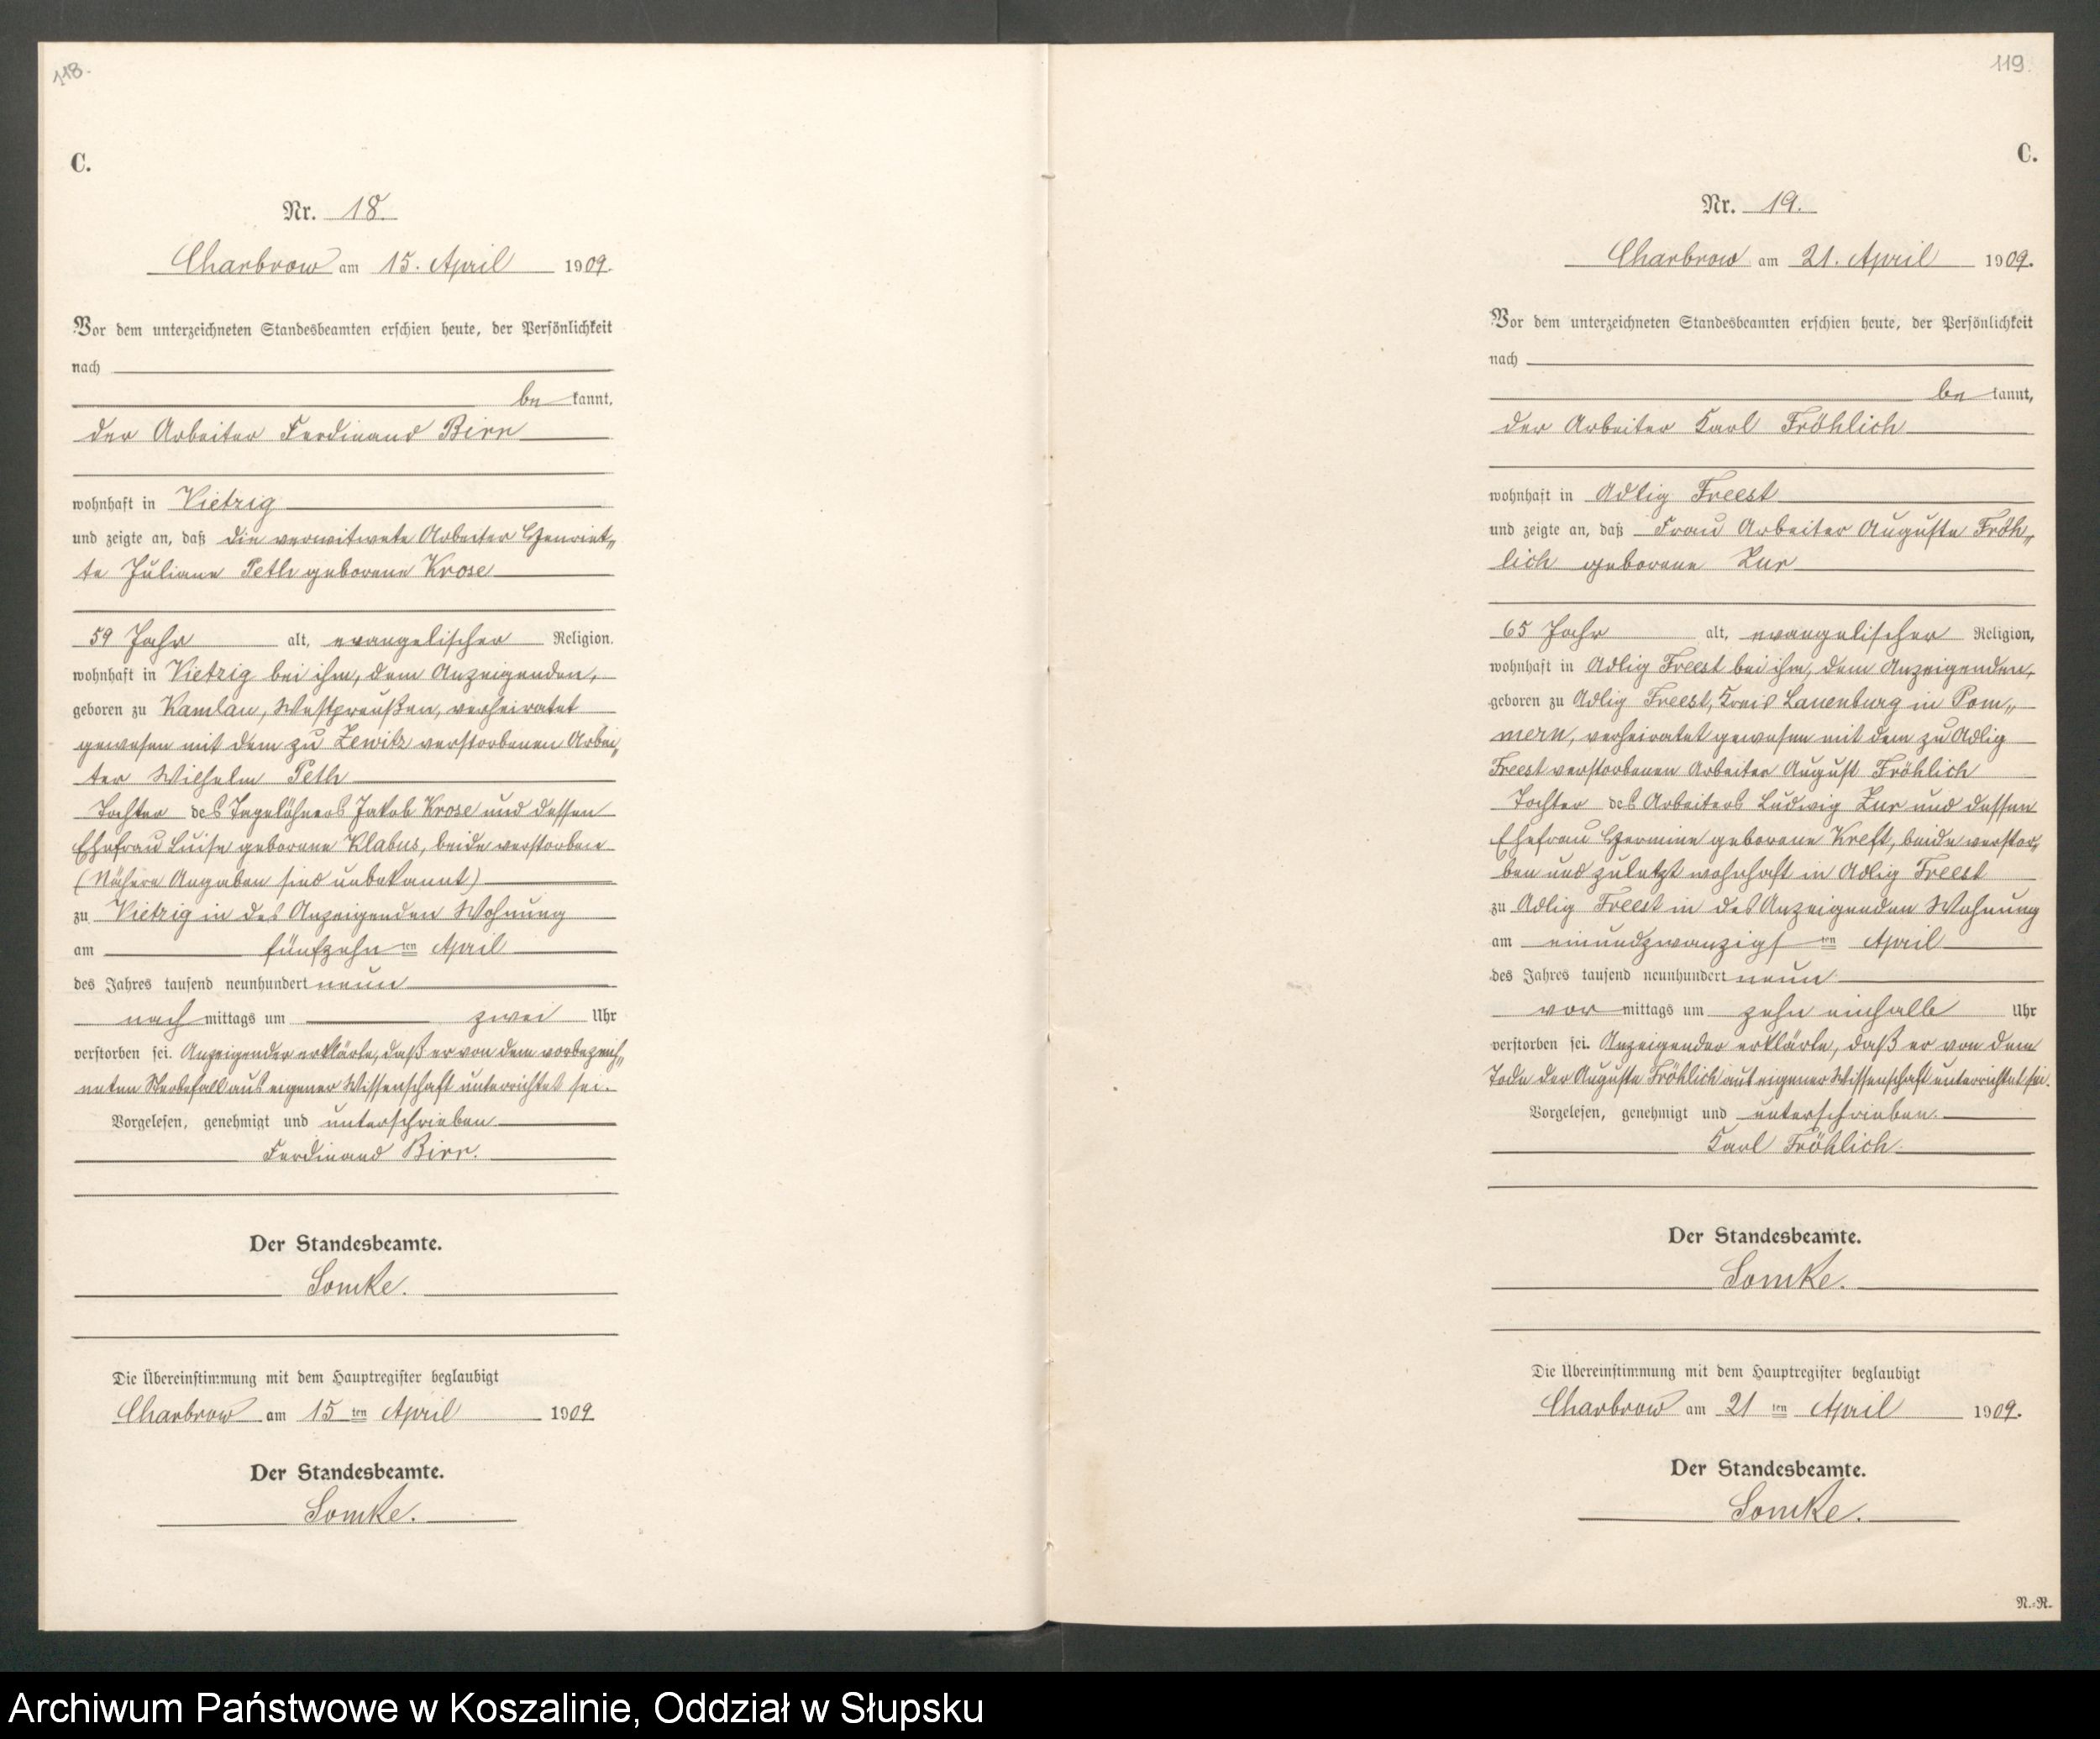 118.
C.
Nr. 18.
Charbrow am 15. April 1909.
Vor dem unterzeichneten Standesbeamten erschien heute, der Persönlichkeit
nach
be kannt,
der Arbeiter Ferdinand Birr
wohnhaft in Vietzig
und zeigte an, daß die verwitwete Arbeiter Henriet„
te Juliane Peth geborene Krose
59 Jahr alt, evangelischer Religion.
wohnhaft in Vietzig bei ihm, dem Anzeigenden,
geboren zu Kamlau, Westpreußen, verheiratet
gewesen mit dem zu Zewitz verstorbenen Arbei„
ter Wilhelm Peth
Tochter des Tagelöhners Jakob Krose und dessen
Ehefrau Luise geborene Klabus, beide verstorben
(Nähere Angaben sind unbekannt)
zu Vietzig in des Anzeigenden Wohnung
am fünfzehn ten April
des Jahres tausend neunhundert neun
nach mittags um zwei Uhr
verstorben sei. Anzeigender erklärte, daß er von dem vorbezeich„
neten Sterbefall aus eigener Wissenschaft unterrichtet sei.
Vorgelesen, genehmigt und unterschrieben
Ferdinand Birr.
Der Standesbeamte.
Somke.
Die Übereinstimmung mit dem Hauptregister beglaubigt
Charbrow am 15 ten April 1909
Der Standesbeamte.
Somke.
119.
C.
Nr. 19.
Charbrow am 21. April 1909.
Vor dem unterzeichneten Standesbeamten erschien heute, der Persönlichkeit
nach
be kannt,
der Arbeiter Karl Fröhlich
wohnhaft in Adlig Freest
und zeigte an, daß Frau Arbeiter Auguste Fröh„
lich geborene Zur
65 Jahr alt, evangelischer Religion,
wohnhaft in Adlig Freest bei ihm, dem Anzeigenden,
geboren zu Adlig Freest, Kreis Lauenburg in Pom„
mern, verheiratet gewesen mit dem zu Adlig
Freest verstorbenen Arbeiter August Fröhlich
Tochter des Arbeiters Ludwig Zur und dessen
Ehefrau Hermine geborene Kreft, beide verstor„
ben und zuletzt wohnhaft in Adlig Freest
zu Adlig Freest in des Anzeigenden Wohnung
am einundzwanzigs ten April
des Jahres tausend neunhundert neun
vor mittags um zehn einhalb Uhr
verstorben sei. Anzeigender erklärte, daß er von dem
Tode der Auguste Fröhlich aus eigener Wissenschaft unterrichtet sei.
Vorgelesen, genehmigt und unterschrieben.
Karl Fröhlich.
Der Standesbeamte.
Somke.
Die Übereinstimmung mit dem Hauptregister beglaubigt
Charbrow am 21 ten April 1909.
Der Standesbeamte.
Somke.
N.-R.
Archiwum Państwowe w Koszalinie, Oddział w Słupsku